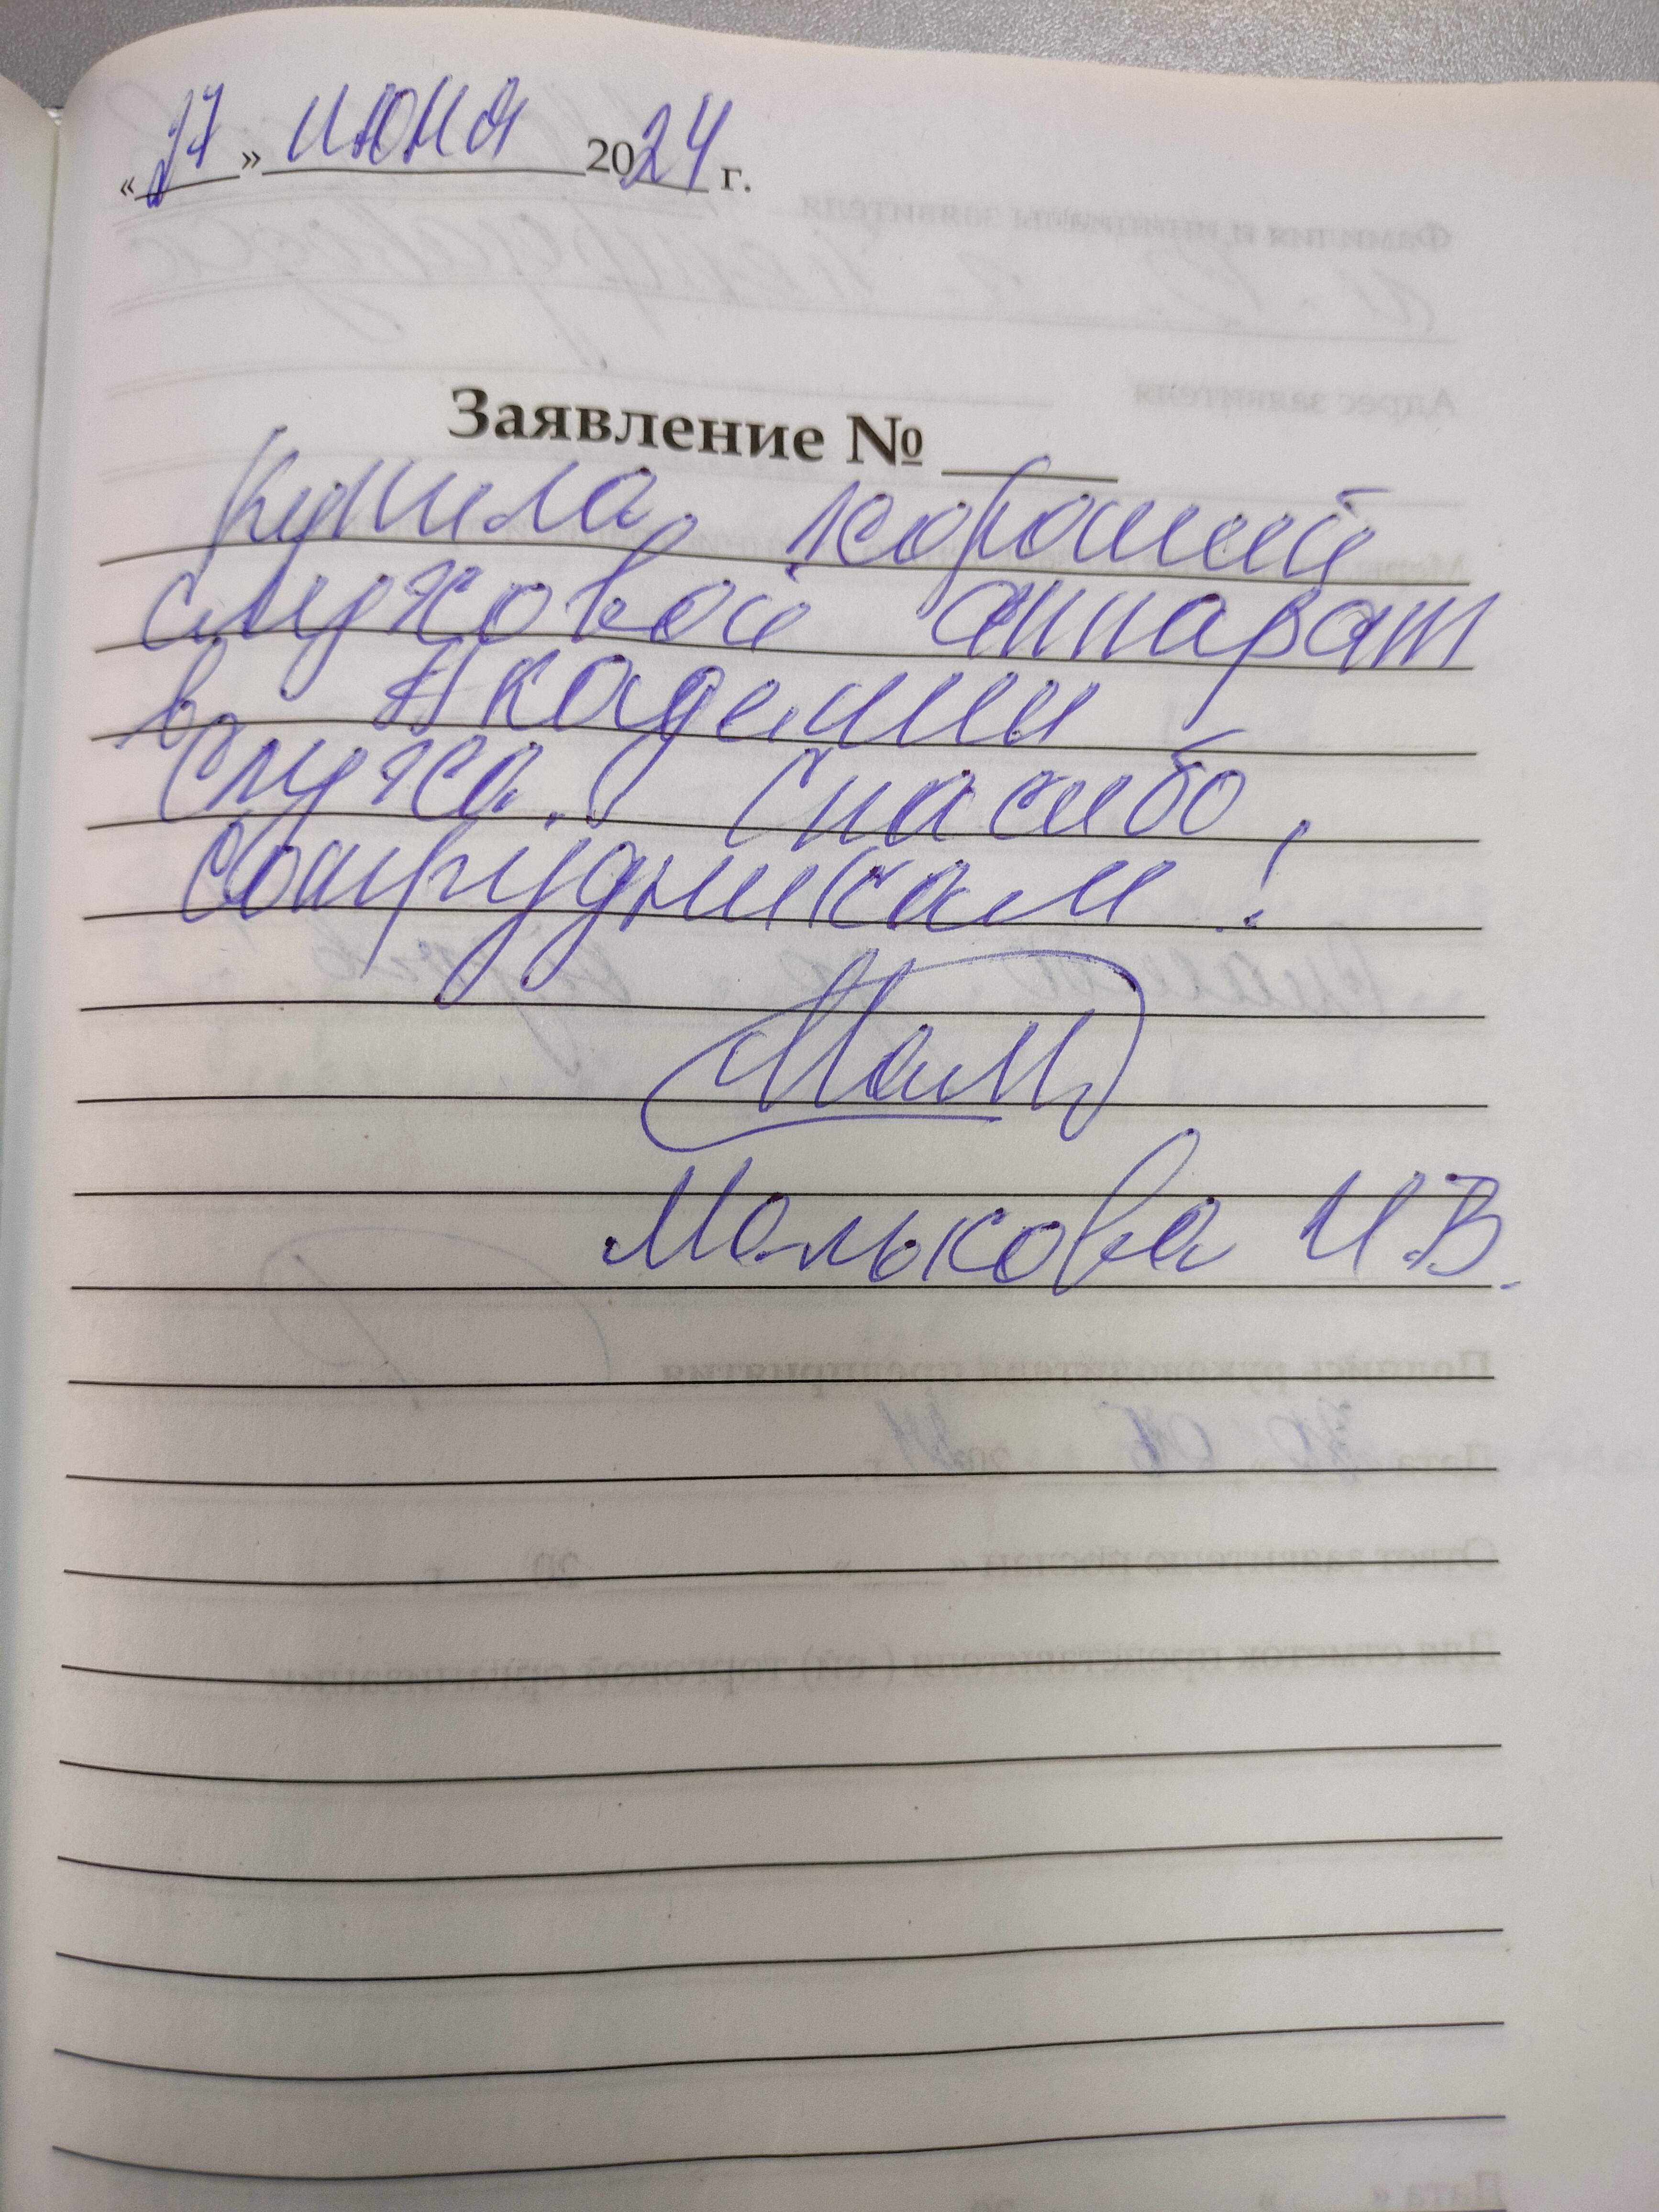 «27» июня 2024 г.
Заявление № ____
Купила хороший
слуховой аппарат
в Академии
Слуха. Спасибо
сотрудникам!
Малькова И.В.